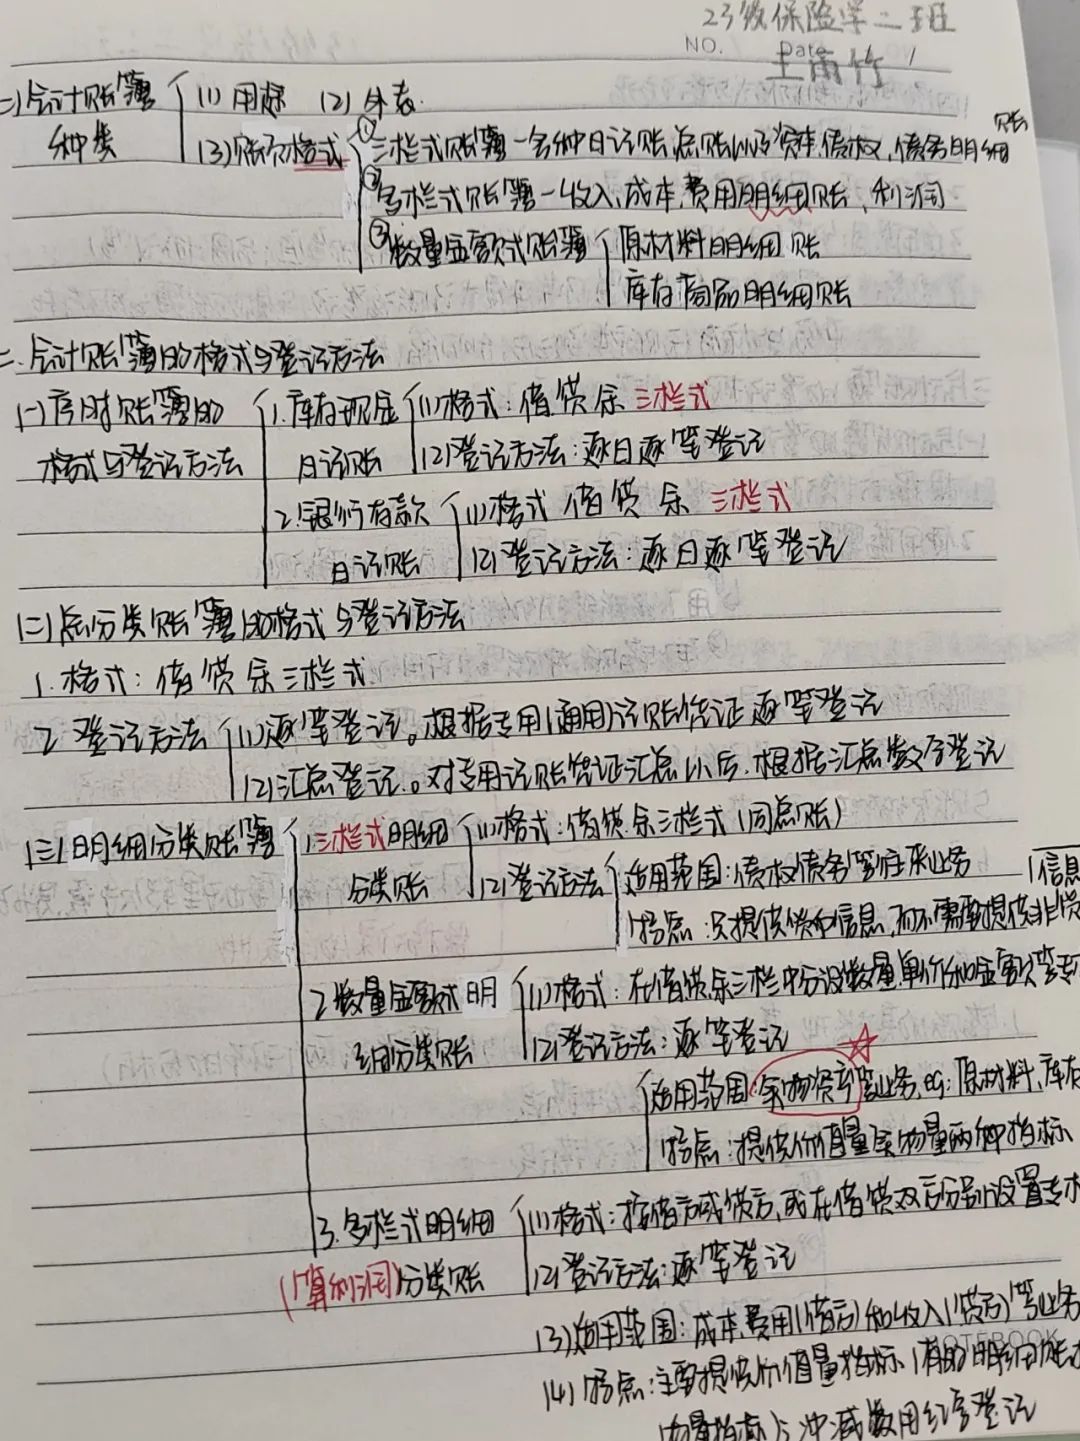 23级保险学二班
NO. Date
王雨竹
二)会计账簿 (1)用途 (2)外表
种类 (3)账页格式 ①三栏式账簿—各种日记账,总账以及资本,债权,债务明细账
②多栏式账簿—收入,成本,费用明细账,利润
③数量金额式账簿 原材料明细账
库存商品明细账
二.会计账簿的格式与登记方法
(一)序时账簿的 1.库存现金 (1)格式:借 贷 余 三栏式
格式与登记方法 日记账 (2)登记方法:逐日逐笔登记
2.银行存款 (1)格式 借 贷 余 三栏式
日记账 (2)登记方法:逐日逐笔登记
(二)总分类账簿的格式与登记方法
1.格式:借 贷 余三栏式
2 登记方法 (1)逐笔登记。根据专用(通用)记账凭证逐笔登记
(2)汇总登记.。对专用记账凭证汇总以后,根据汇总数字登记
(三)明细分类账簿 1.三栏式明细 (1)格式:借贷余三栏式(同总账)
分类账 (2)登记方法 适用范围:债权债务等往来业务 信息
特点:只提供货币信息,而不需要提供非货
2.数量金额式明 (1)格式:在借贷余三栏中分设数量单价和金额等专
细分类账 (2)登记方法:逐笔登记
适用范围:实物资产等业务,eg:原材料、库存
特点:提供价值量实物量两种指标
3.多栏式明细 (1)格式:按借方或贷方,或在借贷双方分别设置专栏
(算利润)分类账 (2)登记方法:逐笔登记
(3)适用范围:成本,费用(借方)和收入(贷方)等业务
NOTEBOOK
(4)特点:主要提供价值量指标(有的明细账
量指标),冲减数用红字登记